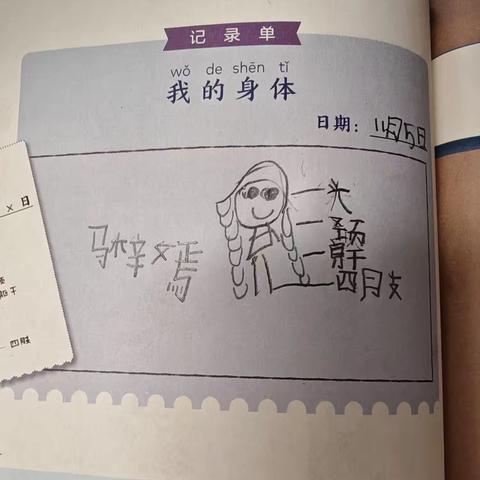 记录单
wǒ de shēn tǐ
我的身体
日期：11月5日
× 日
头
颈
躯干
四肢
四肢